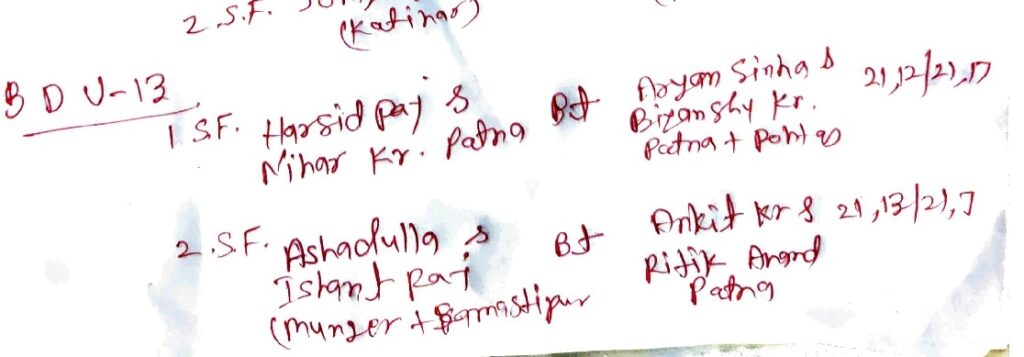 2.S.F.
(Katihar)
B D U-13
1 S.F. Harsid Raj & Bt Aryan Sinha & 21,12/21,17
Nihar Kr. Patna Kr.
Patna +
2.S.F. Ashadulla & Bt Ankit kr & 21,13/21,7
Ishant Raj Ritik Anand
(Munger + Samastipur Patna